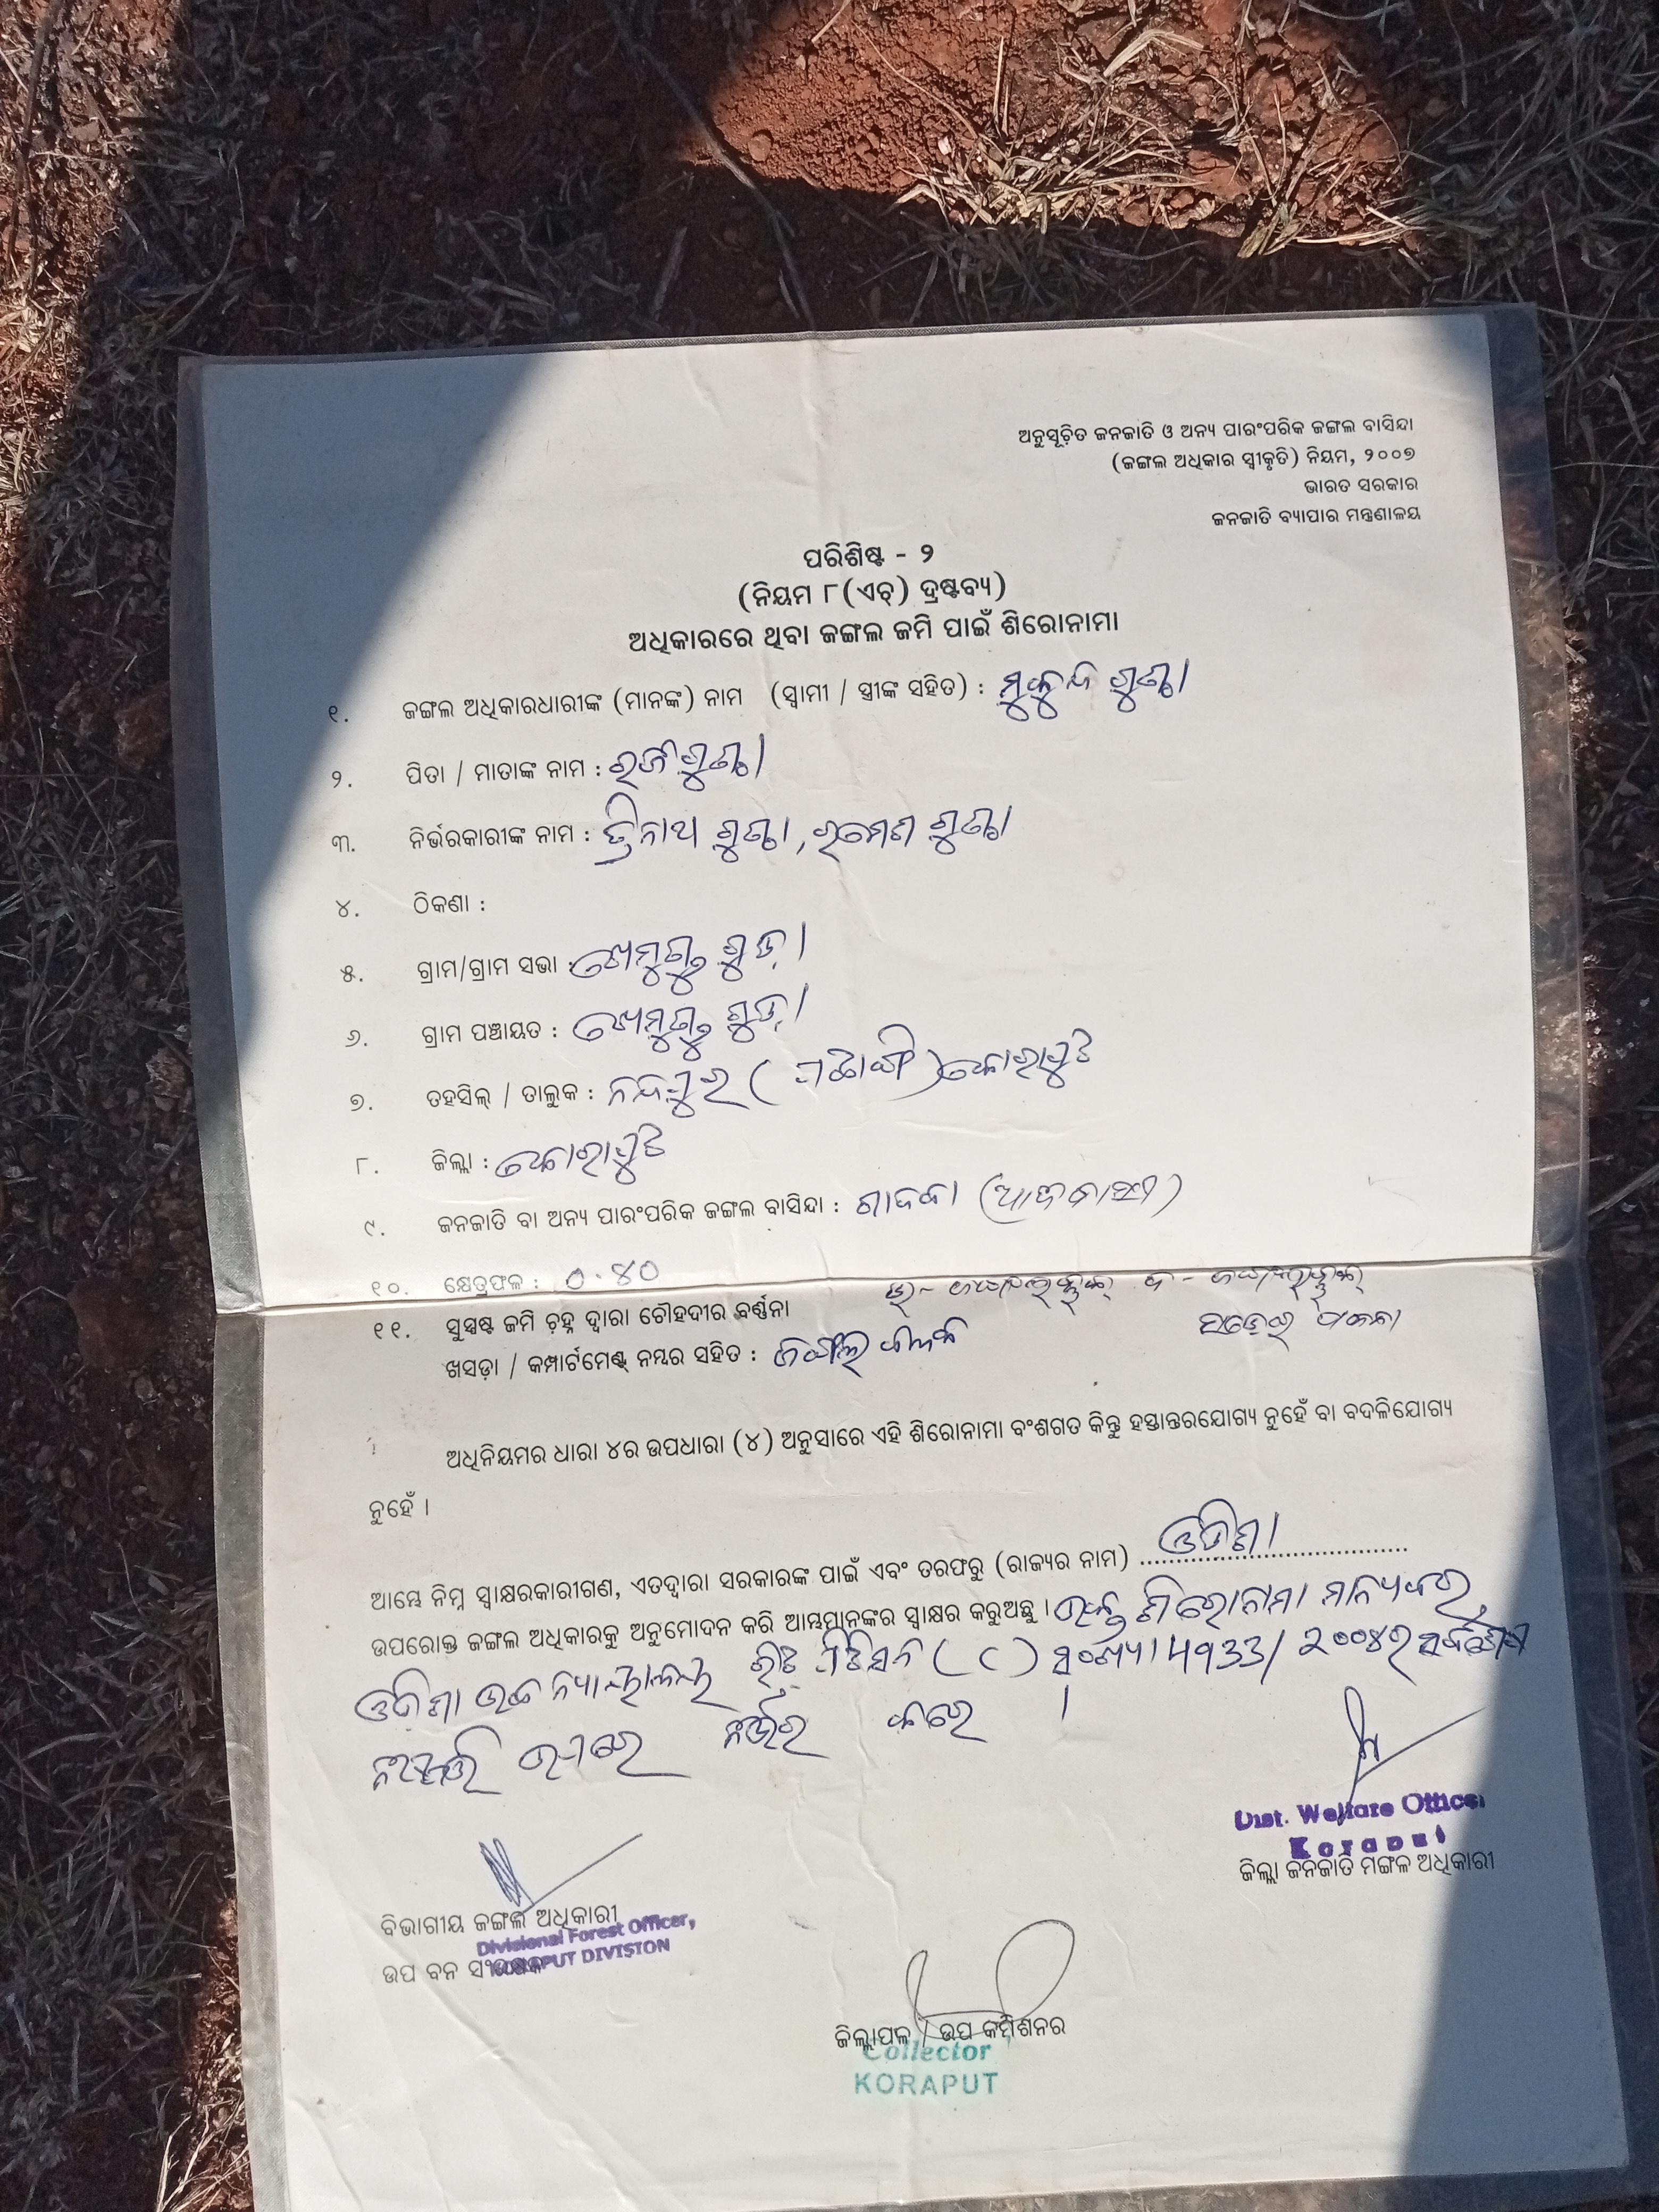 ଅନୁସୂଚିତ ଜନଜାତି ଓ ଅନ୍ୟ ପାରଂପରିକ ଜଙ୍ଗଲ ବାସିନ୍ଦା
(ଜଙ୍ଗଲ ଅଧିକାର ସ୍ୱୀକୃତି) ନିୟମ, ୨୦୦୭
ଭାରତ ସରକାର
ଜନଜାତି ବ୍ୟାପାର ମନ୍ତ୍ରଣାଳୟ
ପରିଶିଷ୍ଟ - ୨
(ନିୟମ ୮(ଏଚ୍) ଦ୍ରଷ୍ଟବ୍ୟ)
ଅଧିକାରରେ ଥିବା ଜଙ୍ଗଲ ଜମି ପାଇଁ ଶିରୋନାମା
୧. ଜଙ୍ଗଲ ଅଧିକାରଧାରୀଙ୍କ (ମାନଙ୍କ) ନାମ (ସ୍ୱାମୀ / ସ୍ତ୍ରୀଙ୍କ ସହିତ) : ମୁକୁନ୍ଦ ଗୁଣ୍ଠା
୨. ପିତା / ମାତାଙ୍କ ନାମ : ଗୁଣ୍ଠା
୩. ନିର୍ଭରକାରୀଙ୍କ ନାମ : ତ୍ରିନାଥ ଗୁଣ୍ଠା, ରମେଶ ଗୁଣ୍ଠା
୪. ଠିକଣା :
୫. ଗ୍ରାମ/ଗ୍ରାମ ସଭା : ଖେମୁଗୁରୁ ଗୁଡ଼ା
୬. ଗ୍ରାମ ପଞ୍ଚାୟତ : ଖେମୁଗୁରୁ ଗୁଡ଼ା
୭. ତହସିଲ୍ / ତାଲୁକ : ନନ୍ଦପୁର ( ପଟାଙ୍ଗୀ ) କୋରାପୁଟ
୮. ଜିଲ୍ଲା : କୋରାପୁଟ
୯. ଜନଜାତି ବା ଅନ୍ୟ ପାରଂପରିକ ଜଙ୍ଗଲ ବାସିନ୍ଦା : ଗାଦବା (ଆଦିବାସୀ)
୧୦. କ୍ଷେତ୍ରଫଳ : ୦.୪୦
୧୧. ସୁସ୍ପଷ୍ଟ ଜମି ଚିହ୍ନ ଦ୍ୱାରା ଚୌହଦୀର ବର୍ଣ୍ଣନା
ଖସଡ଼ା / କମ୍ପାର୍ଟମେଣ୍ଟ୍ ନମ୍ବର ସହିତ : ଜଙ୍ଗଲ
ଅଧିନିୟମର ଧାରା ୪ର ଉପଧାରା (୪) ଅନୁସାରେ ଏହି ଶିରୋନାମା ବଂଶଗତ କିନ୍ତୁ ହସ୍ତାନ୍ତରଯୋଗ୍ୟ ନୁହେଁ ବା ବଦଳିଯୋଗ୍ୟ
ନୁହେଁ ।
ଆମ୍ଭେ ନିମ୍ନ ସ୍ୱାକ୍ଷରକାରୀଗଣ, ଏତଦ୍ୱାରା ସରକାରଙ୍କ ପାଇଁ ଏବଂ ତରଫରୁ (ରାଜ୍ୟର ନାମ) ଓଡ଼ିଶା
ଉପରୋକ୍ତ ଜଙ୍ଗଲ ଅଧିକାରକୁ ଅନୁମୋଦନ କରି ଆମ୍ଭମାନଙ୍କର ସ୍ୱାକ୍ଷର କରୁଅଛୁ । ଉକ୍ତ ଶିରୋନାମା ମାନ୍ୟବର
ଓଡ଼ିଶା ଉଚ୍ଚ ନ୍ୟାୟାଳୟ ରିଟ୍ ପିଟିସନ (C) ସଂଖ୍ୟା 4933/ ୨୦୦୪ର ସର୍ବଶେଷ
ନିଷ୍ପତ୍ତି ଉପରେ ନିର୍ଭର କରେ ।
Dist. Welfare Officer
Koraput
ଜିଲ୍ଲା ଜନଜାତି ମଙ୍ଗଳ ଅଧିକାରୀ
ବିଭାଗୀୟ ଜଙ୍ଗଲ ଅଧିକାରୀ
Divisional Forest Officer,
ଉପ ବନ ସଂରକ୍ଷକ
KORAPUT DIVISION
ଜିଲ୍ଲାପାଳ / ଉପ କମିଶନର
Collector
KORAPUT